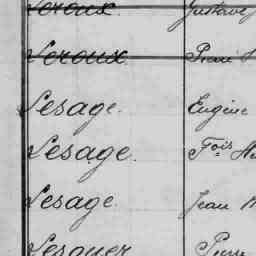 Leroux. Gustave
Leroux. Pierre
Lesage. Eugène
Lesage. Fois
Lesage. Jean
Lesauer Pierre